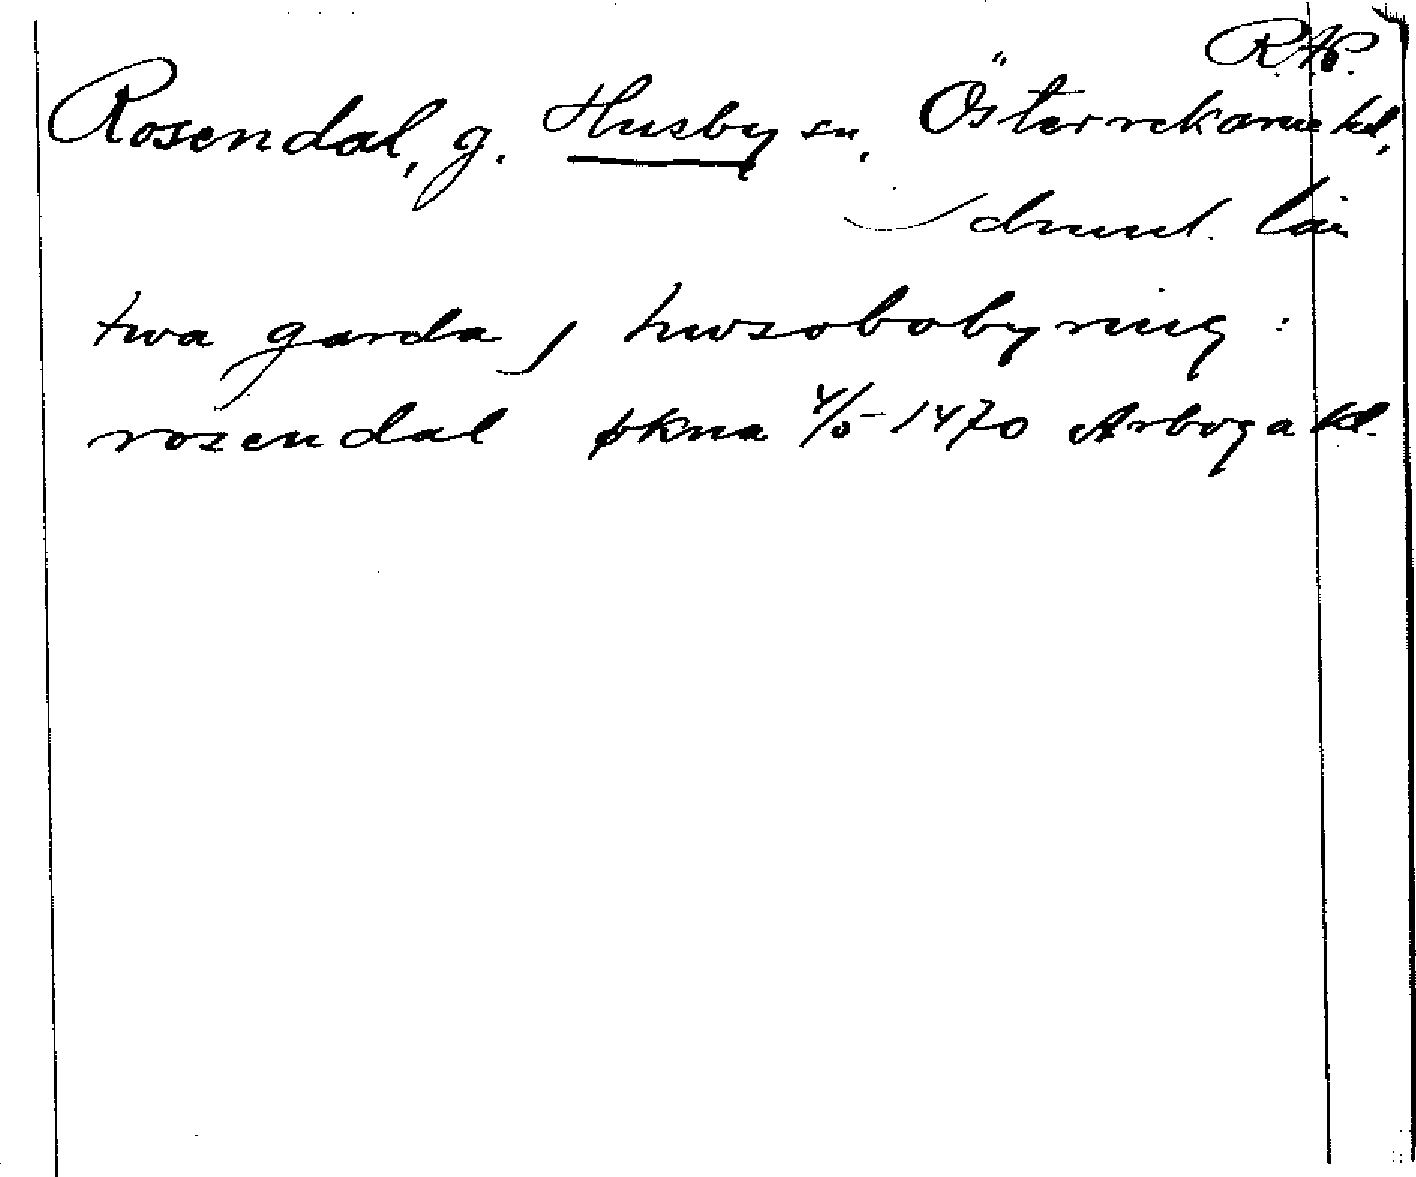 R.Ap.
Rosendal, g. Husby sn, Österrekarne hd,
Södermel. län
twa garda j hwsobobygning :
rosendal økna 4/5 1470 Arboga kl.